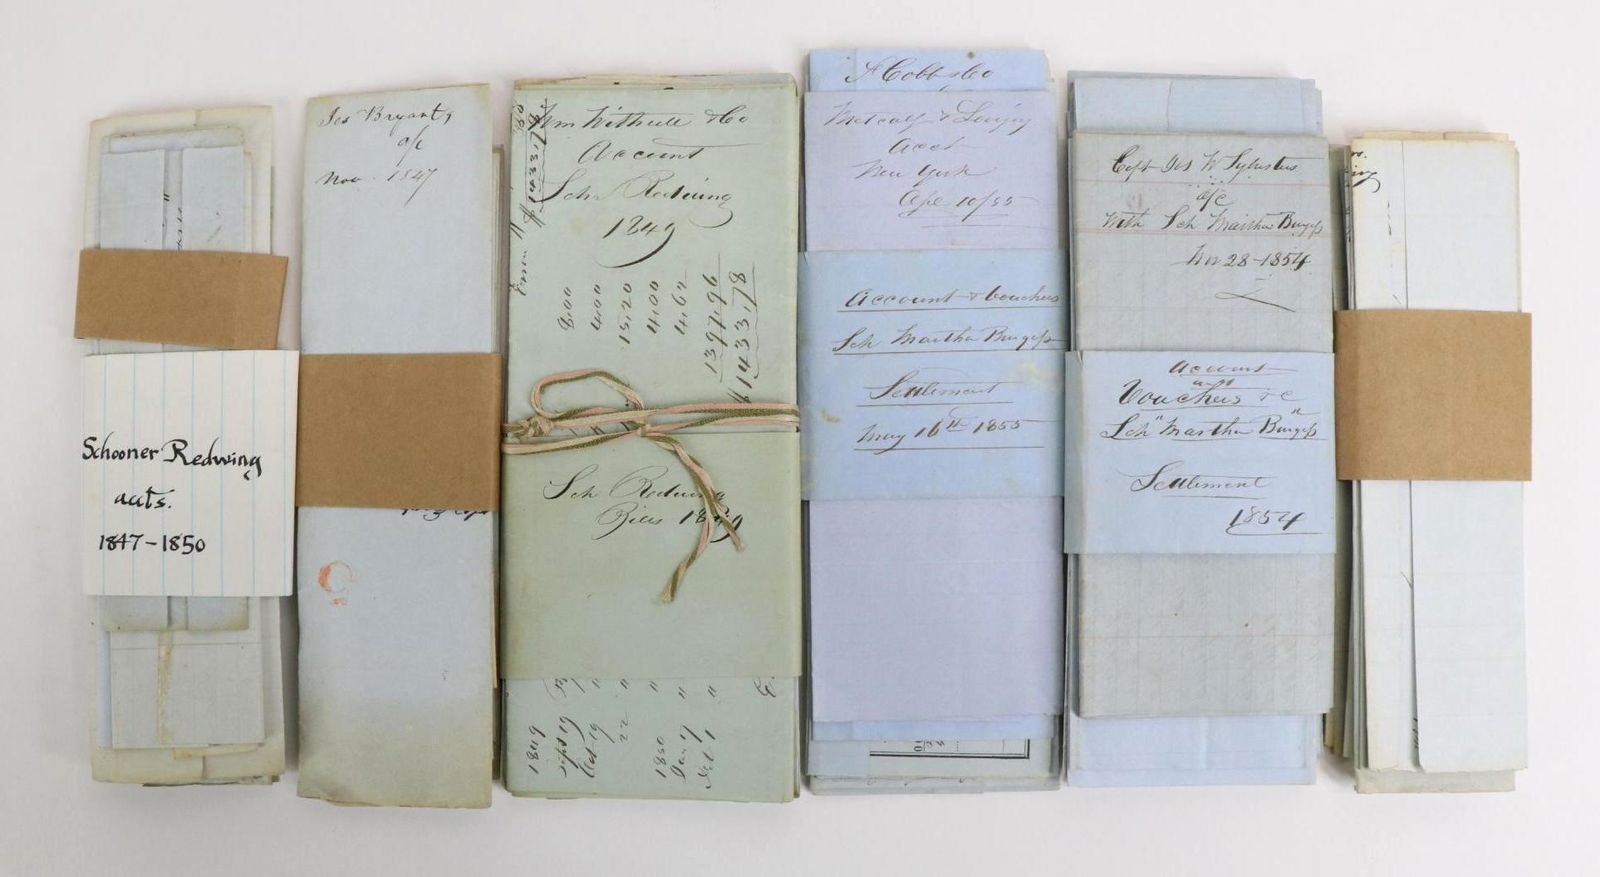 Schooner Redwing
accts.
1847-1850
Jos Bryant,
a/c
Nov. 1847
Wm Witherle & Co
Account
Sch Redwing
1849
8.00
4.00
15.20
4.00
4.62
1397.96
$1433.78
Sch Redwing
Bills 1849
1849
Sept 19
Oct 19
22
1850
A Cobb & Co
Metcalf &
Acct
New York
Apl 10/55
Account & Vouchers
Sch Martha Burgess
Settlement
May 16th 1855
Capt Jos W Sylvester
a/c
With Sch Martha Burgess
Nov 28-1854
Account
and
Vouchers &c
Sch "Martha Burgess"
Settlement
1854